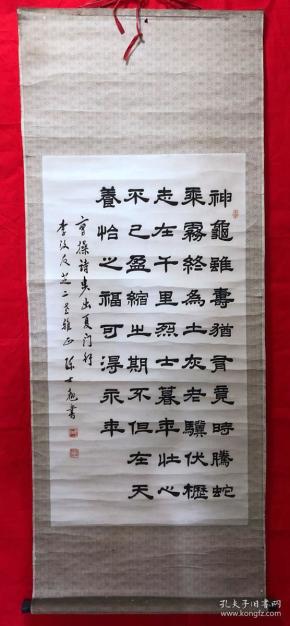 神龜雖壽猶有竟時騰蛇
乘霧終為土灰老驥伏櫪
志在千里烈士暮年壯心
不已盈縮之期不但在天
養怡之福可得永年
曹操詩步出夏门行
李 二 雅正 書
孔夫子旧书网
kongfz.com